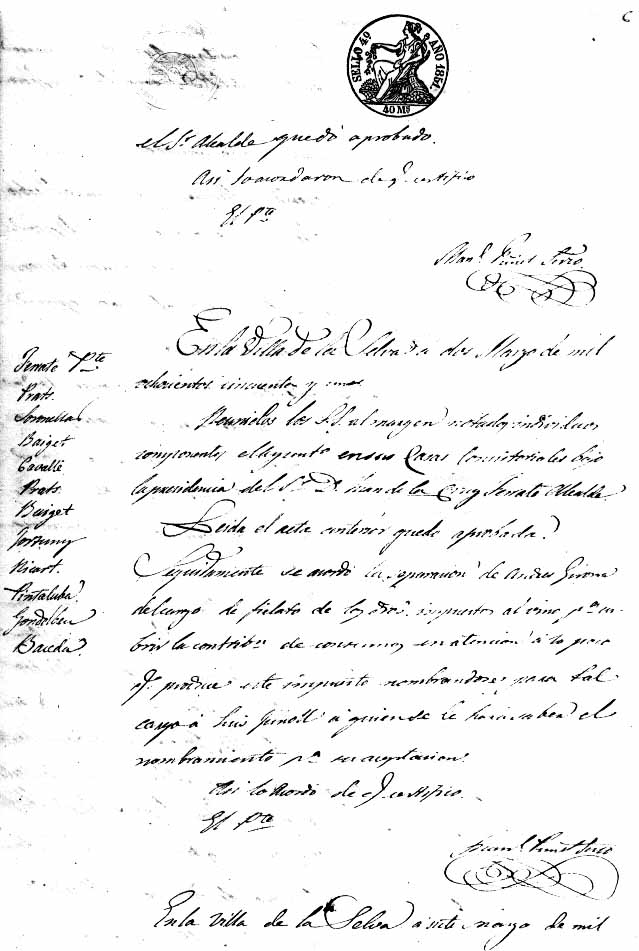 SELLO 4º AÑO 1851.
40 Ms
el Sr. Alcalde quedó aprobado.
Asi lo acordaron de q. certifico
El Pte
Man.l Piñol Srio.
En la Villa de la Selva á dos Marzo de mil
ochocientos cincuenta y uno
Serrato Pte
Prats
Baiget
Cavallé
Prats
Baiget
Fortuny
Ricart
Pintaluba
Gondolbeu
Reunidos los SS. al margen notados individuos
componentes el Ayunto en sus Casas Consistoriales bajo
la presidencia del Sr. Dn. Juan de la Cruz Serrato Alcalde
Leida el acta anterior quedo aprobada.
Seguidamente se acordó la separacion de Andres Girona
del cargo de fielato de los dros. impuestos al vino, pa. cu-
brir la contribn. de consumos en atencion á lo poco
q. produce este impuesto nombrandose para tal
cargo á Luis á quien se le hara saber el
nombramiento pa. su aceptacion.
Asi lo acordó de q. certifico.
El Pte
Man.l Piñol Srio
En la Villa de la Selva á siete marzo de mil